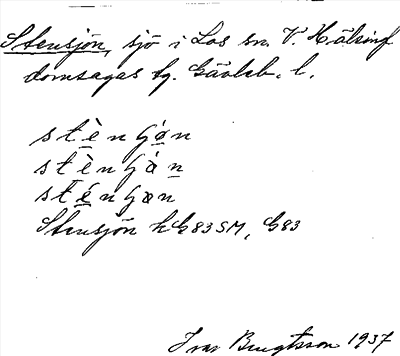 Stensjön, sjö i Los sn. V. Hälsing
domsagas tg. Gävleb. l.
stèngøn
stèngàn
sténgøn
Stensjön hG83SM, G83
Ivar Bengtsson 1937